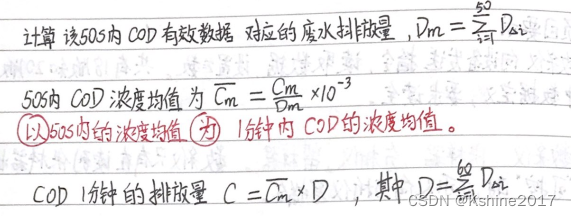 计算 该50s内 COD 有效数据 对应的废水排放量，Dm = \sum_{i=1}^{50} D_{Δi}
50s内 COD 浓度均值为 \overline{Cm} = \frac{Cm}{Dm} ×10^{-3}
以50s内的浓度均值 为 1分钟内 COD的浓度均值。
COD 1分钟的排放量 C = \overline{Cm} × D ，其中 D = \sum_{i=1}^{60} D_{Δi}
CSDN @Kshine2017